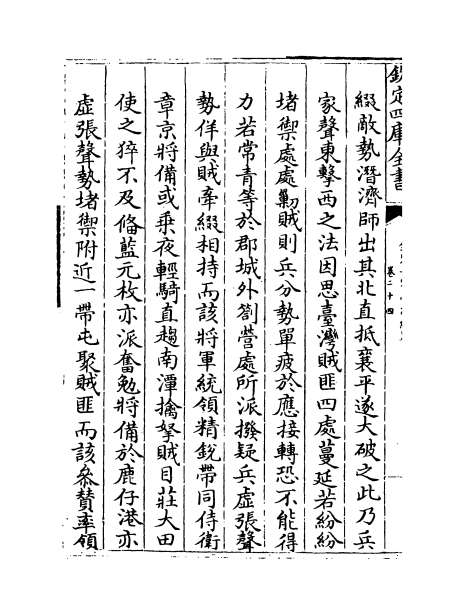 欽定四庫全書
卷二十四
綴敵勢潛濟師出其北直抵襄平遂大破之此乃兵
家聲東擊西之法因思臺灣賊匪四處蔓延若紛紛
堵禦處處勦賊則兵分勢單疲於應接轉恐不能得
力若常青等於郡城外劄營處所派撥疑兵虛張聲
勢佯與賊牽綴相持而該將軍統領精銳帶同侍衛
章京將備或乘夜輕騎直趨南潭擒拏賊目莊大田
使之猝不及備藍元枚亦派奮勉將備於鹿仔港亦
虛張聲勢堵禦附近一帶屯聚賊匪而該叅贊率領